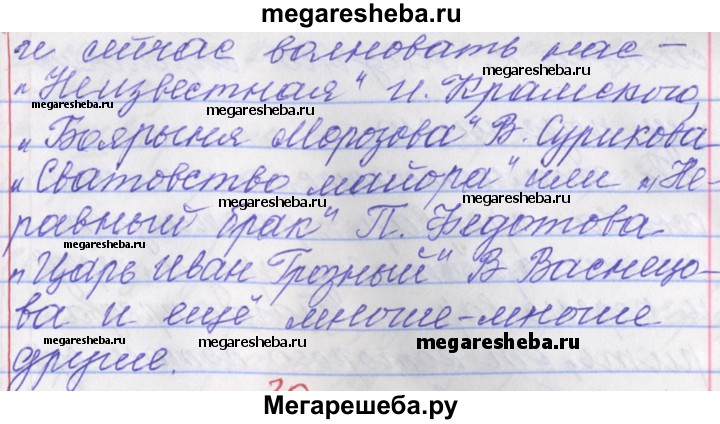 megaresheba.ru
и сейчас волновать нас –
megaresheba.ru
„Неизвестная“ И. Крамского,
megaresheba.ru
megaresheba.ru
„Боярыня Морозова“ В. Сурикова
megaresheba.ru
„Сватовство майора“ или „Не-
равный брак“ П. Федотова
megaresheba.ru
megaresheba.ru
„Царь Иван Грозный“ В Васнецо-
ва и ещё многие-многие
megaresheba.ru
megaresheba.ru
другие.
Мегарешеба.ру